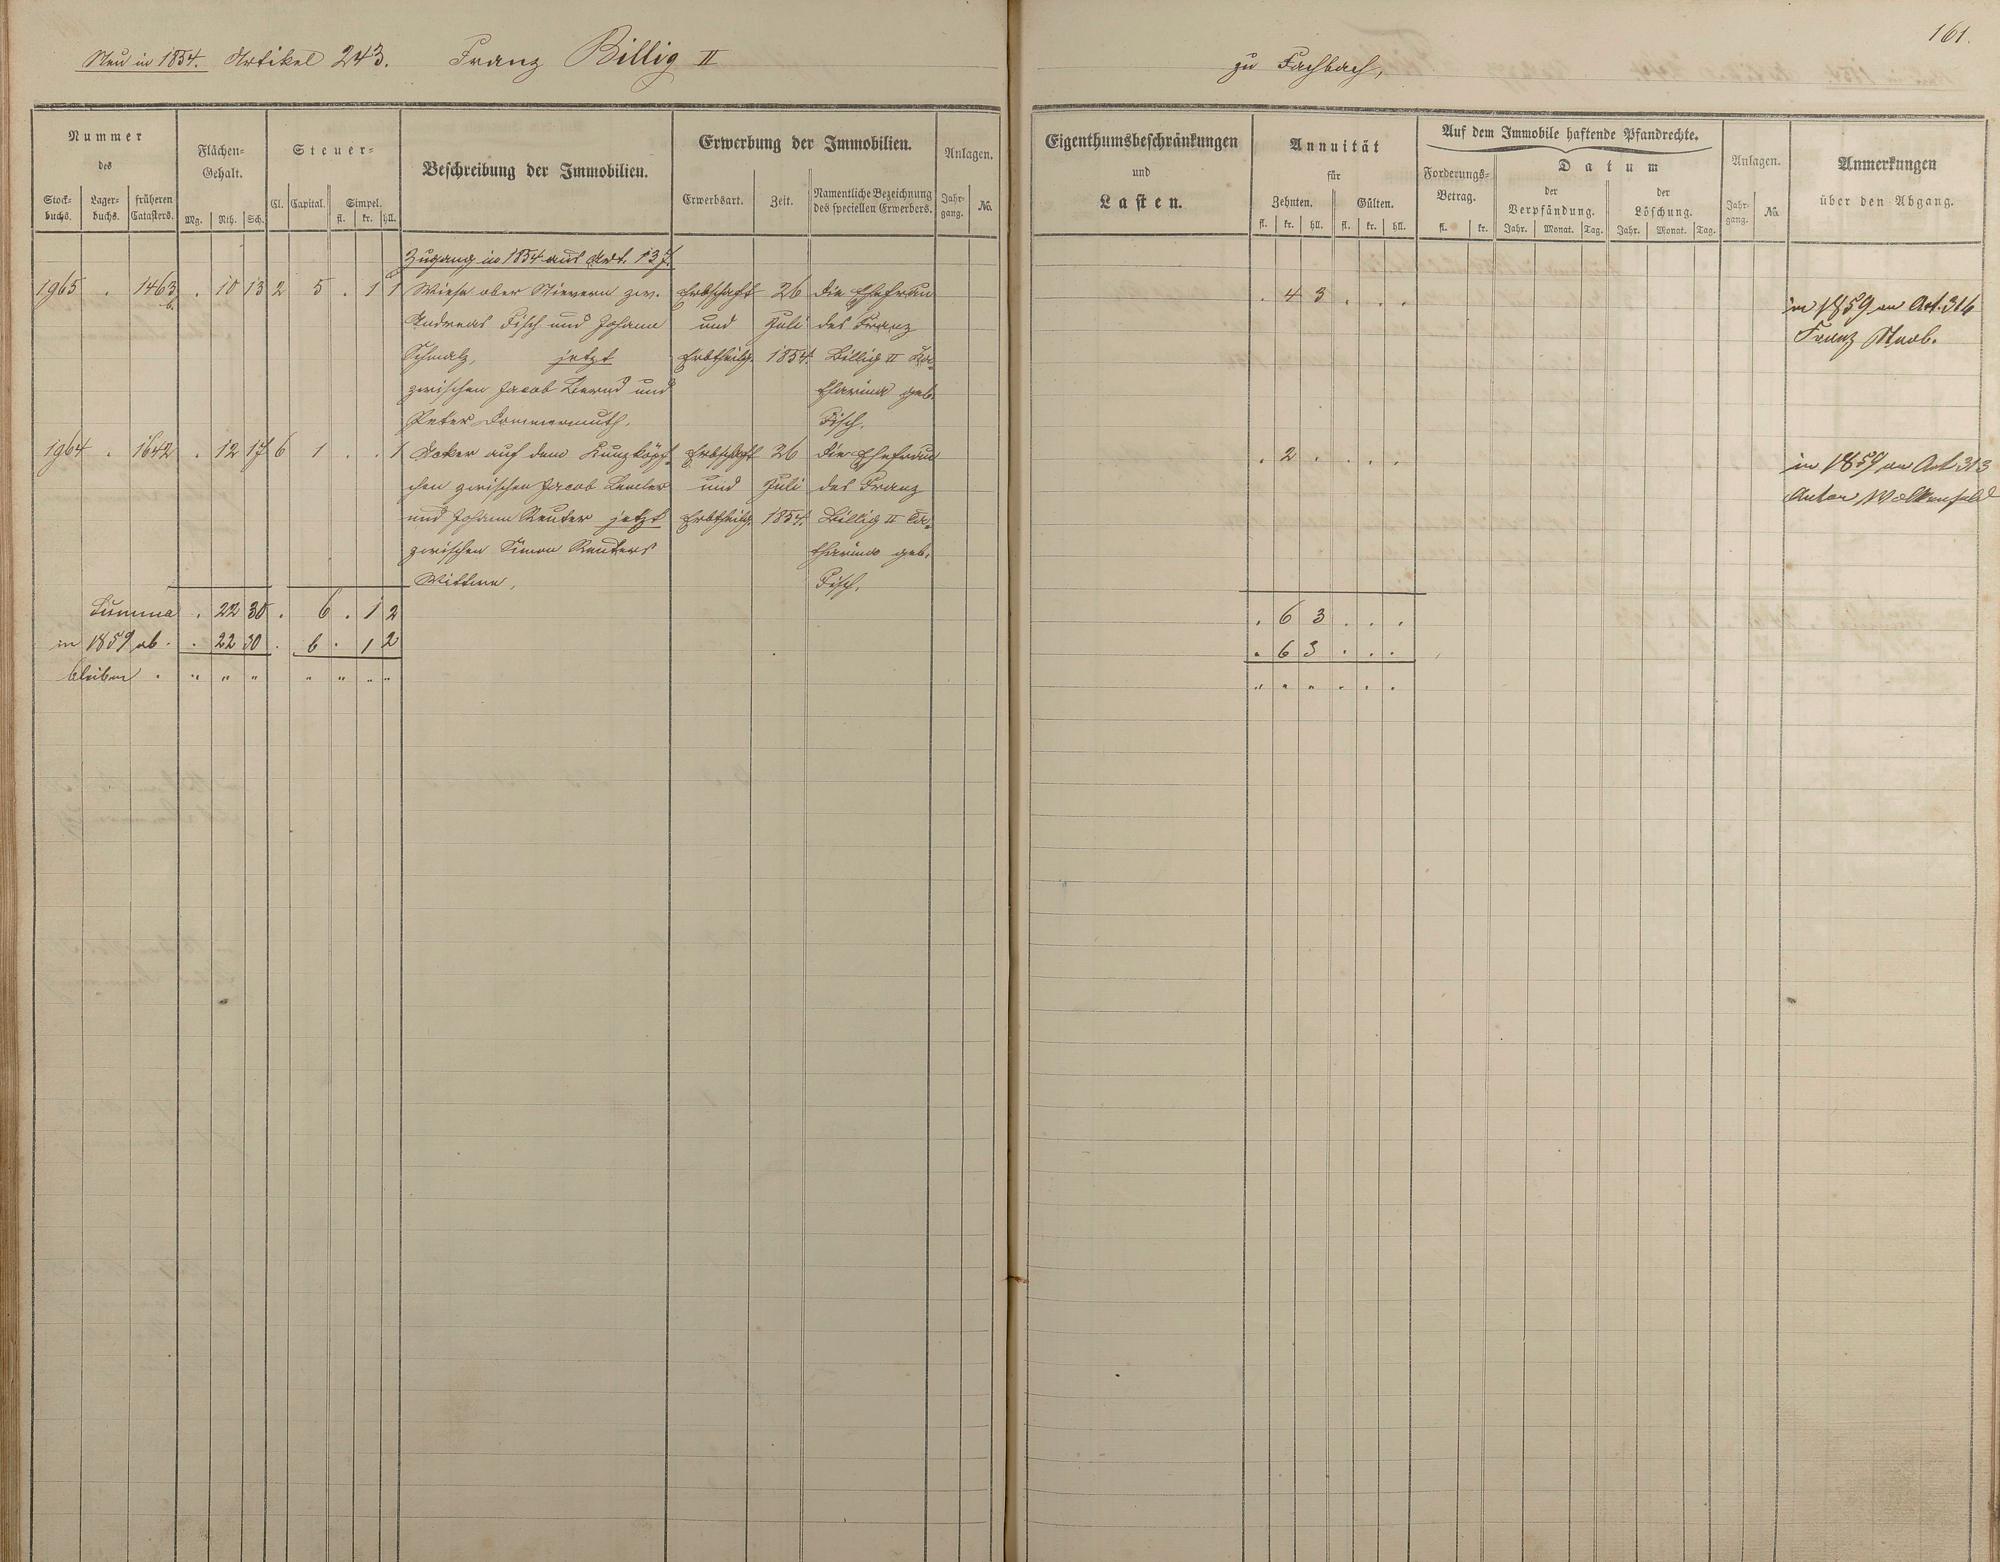 161.
Neu in 1854. Artikel 243. Franz Billig II
zu Fachbach,
Nummer
des
Stock-
buchs.
Lager-
buchs.
früheren
Catasters.
Flächen-
Gehalt.
Mg. Rth. Sch.
Steuer-
Cl. Capital. Simpel.
fl. kr. hll.
Beschreibung der Immobilien.
Erwerbung der Immobilien.
Erwerbsart. Zeit. Namentliche Bezeichnung
des speciellen Erwerbers.
Anlagen.
Jahr-
gang. No.
Eigenthumsbeschränkungen
und
Lasten.
Annuität
für
Zehnten. Gülten.
fl. kr. hll. fl. kr. hll.
Auf dem Immobile haftende Pfandrechte.
Forderungs-
Betrag.
fl. kr.
Datum
der
Verpfändung.
Jahr. Monat. Tag.
der
Löschung.
Jahr. Monat. Tag.
Anlagen.
Jahr-
gang. No.
Anmerkungen
über den Abgang.
Zugang in 1854 aus Art. 137.
1965 . 1463 . 10 13 2 5 . 1 1 Wiese ober Nievern zw. Erbschaft 26 die Ehefrau . 4 3 . . . in 1859 an Art. 316
b.
Andreas Fisch und Johann und Juli des Franz Franz
Schmalz, jetzt Erbtheilg. 1854. Billig II Ka-
zwischen Jacob Bernd und tharina geb.
Peter Dommermuth. Fisch.
1964 . 1642 . 12 17 6 1 . . 1 Acker auf dem Kunzköpf- Erbschaft 26 die Ehefrau . 2 . . . . in 1859 an Art 313
chen zwischen Jacob und Juli des Franz Anton Wolkenfeld
und Johann Reuter jetzt Erbtheilg. 1854. Billig II Ca-
zwischen Simon Reuters tharina geb.
Wittwe, Fisch.
Summa . 22 30 . 6 . 1 2 . 6 3 . . .
in 1859 ab . . 22 30 . 6 . 1 2 . 6 3 . . .
bleiben . " " " " " " " " " " . . .